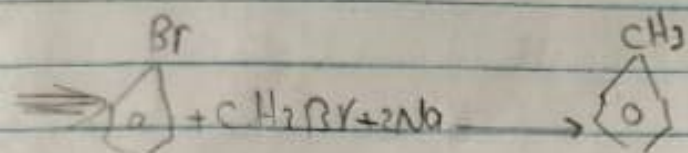 Br CH3
⇒ + CH2Br + 2Na →